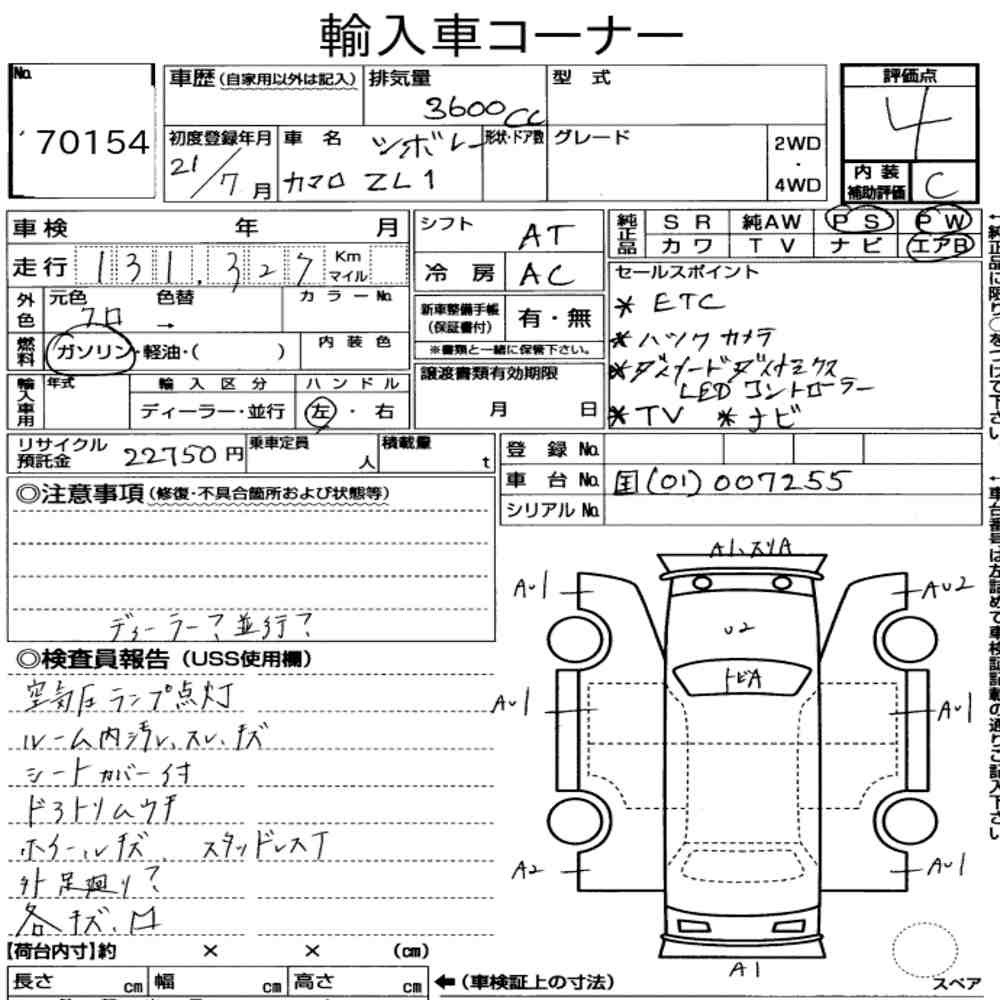 輸入車コーナー
No.
70154
車歴(自家用以外は記入)
排気量
3600cc
型式
評価点
4
初度登録年月
21/7月
車名
シボレー
カマロ ZL1
形状・ドア数
グレード
2WD
・
4WD
内装
補助評価
C
車検 年 月
シフト
AT
純正品
SR 純AW PS PW
カワ TV ナビ エアB
走行
131,327
Km
マイル
冷房
AC
セールスポイント
* ETC
外色
元色 色替 カラーNo.
クロ →
新車整備手帳
(保証書付)
有・無
※書類と一緒に保管下さい。
燃料
ガソリン・軽油・( )
内装色
輸入車用
年式
輸入区分
ハンドル
ディーラー・並行
左・右
譲渡書類有効期限
月 日
* ダイナードダイナミクス
LEDコントローラー
*TV *ナビ
リサイクル
預託金
22750円
乗車定員
人
積載量
t
登録No.
車台No.
国(01)007255
シリアルNo.
◎注意事項(修復・不具合箇所および状態等)
ディーラー?並行?
◎検査員報告(USS使用欄)
空気圧ランプ点灯
ルーム内汚レ、スレ、キズ
シートカバー付
ドアトリムウキ
ホイールキズ、スタッドレスT
外足廻り?
A1
AU1
AU2
U2
トビA
AU1
AU1
A2
AU1
A1
スペア
【荷台内寸】約 × × (cm)
長さ cm 幅 cm 高さ cm
←(車検証上の寸法)